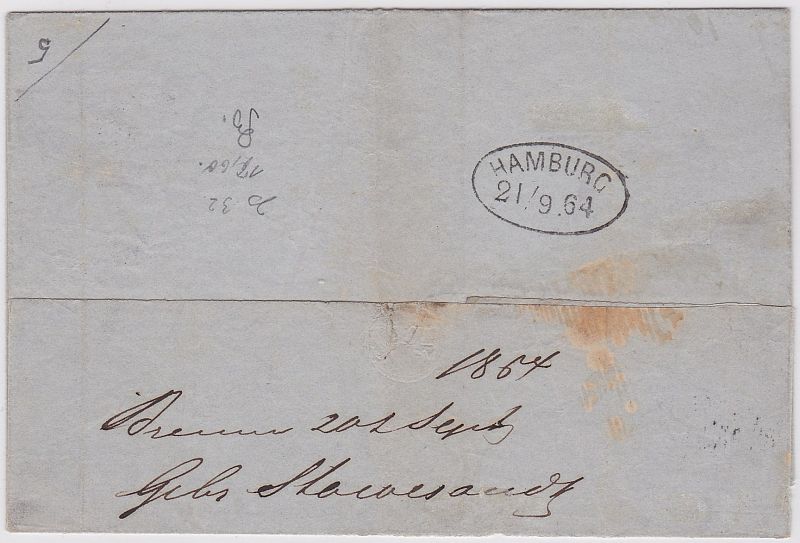 5
HAMBURG
21/9.64
1864
Bremen 20t Sept
Gebr Stawesandt